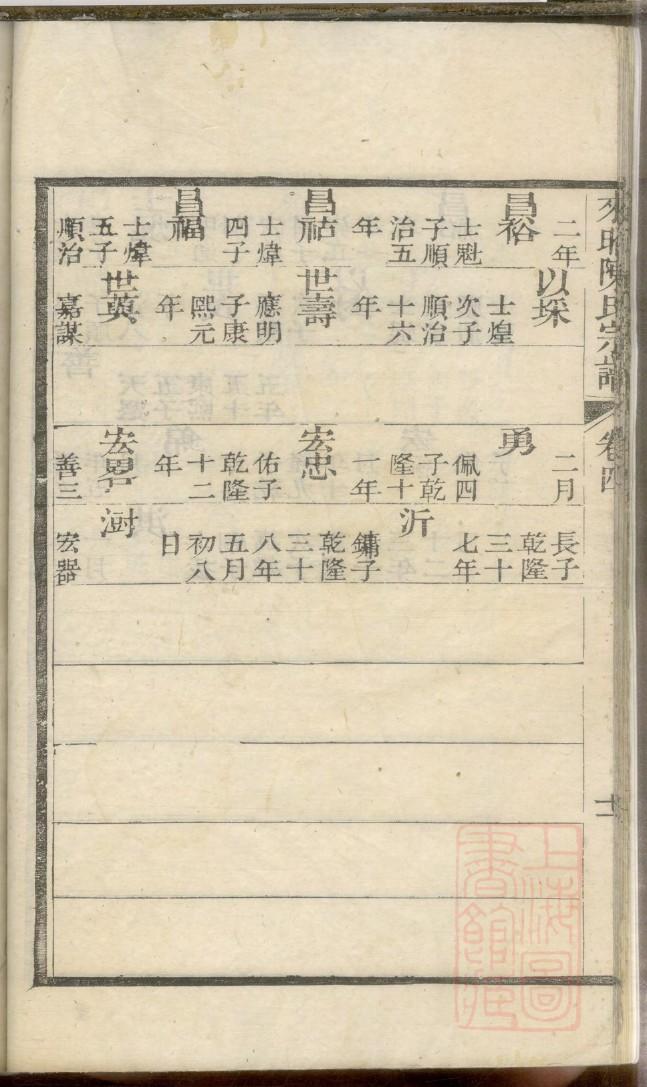 昭陳氏宗譜
卷四
二年
昌裕
士魁
子順
治五
年
昌祜
士煒
四子
昌福
士煒
五子
順治
以埰
士煌
次子
順治
十六
年
世壽
應明
子康
熙元
年
世英
嘉謀
二月
勇
佩四
子乾
隆十
一年
宏忠
佑子
乾隆
十二
年
宏畧
善三
長子
乾隆
三十
七年
沂
鏞子
乾隆
三十
八年
五月
初八
日
厨
宏器
上海圖
書館藏